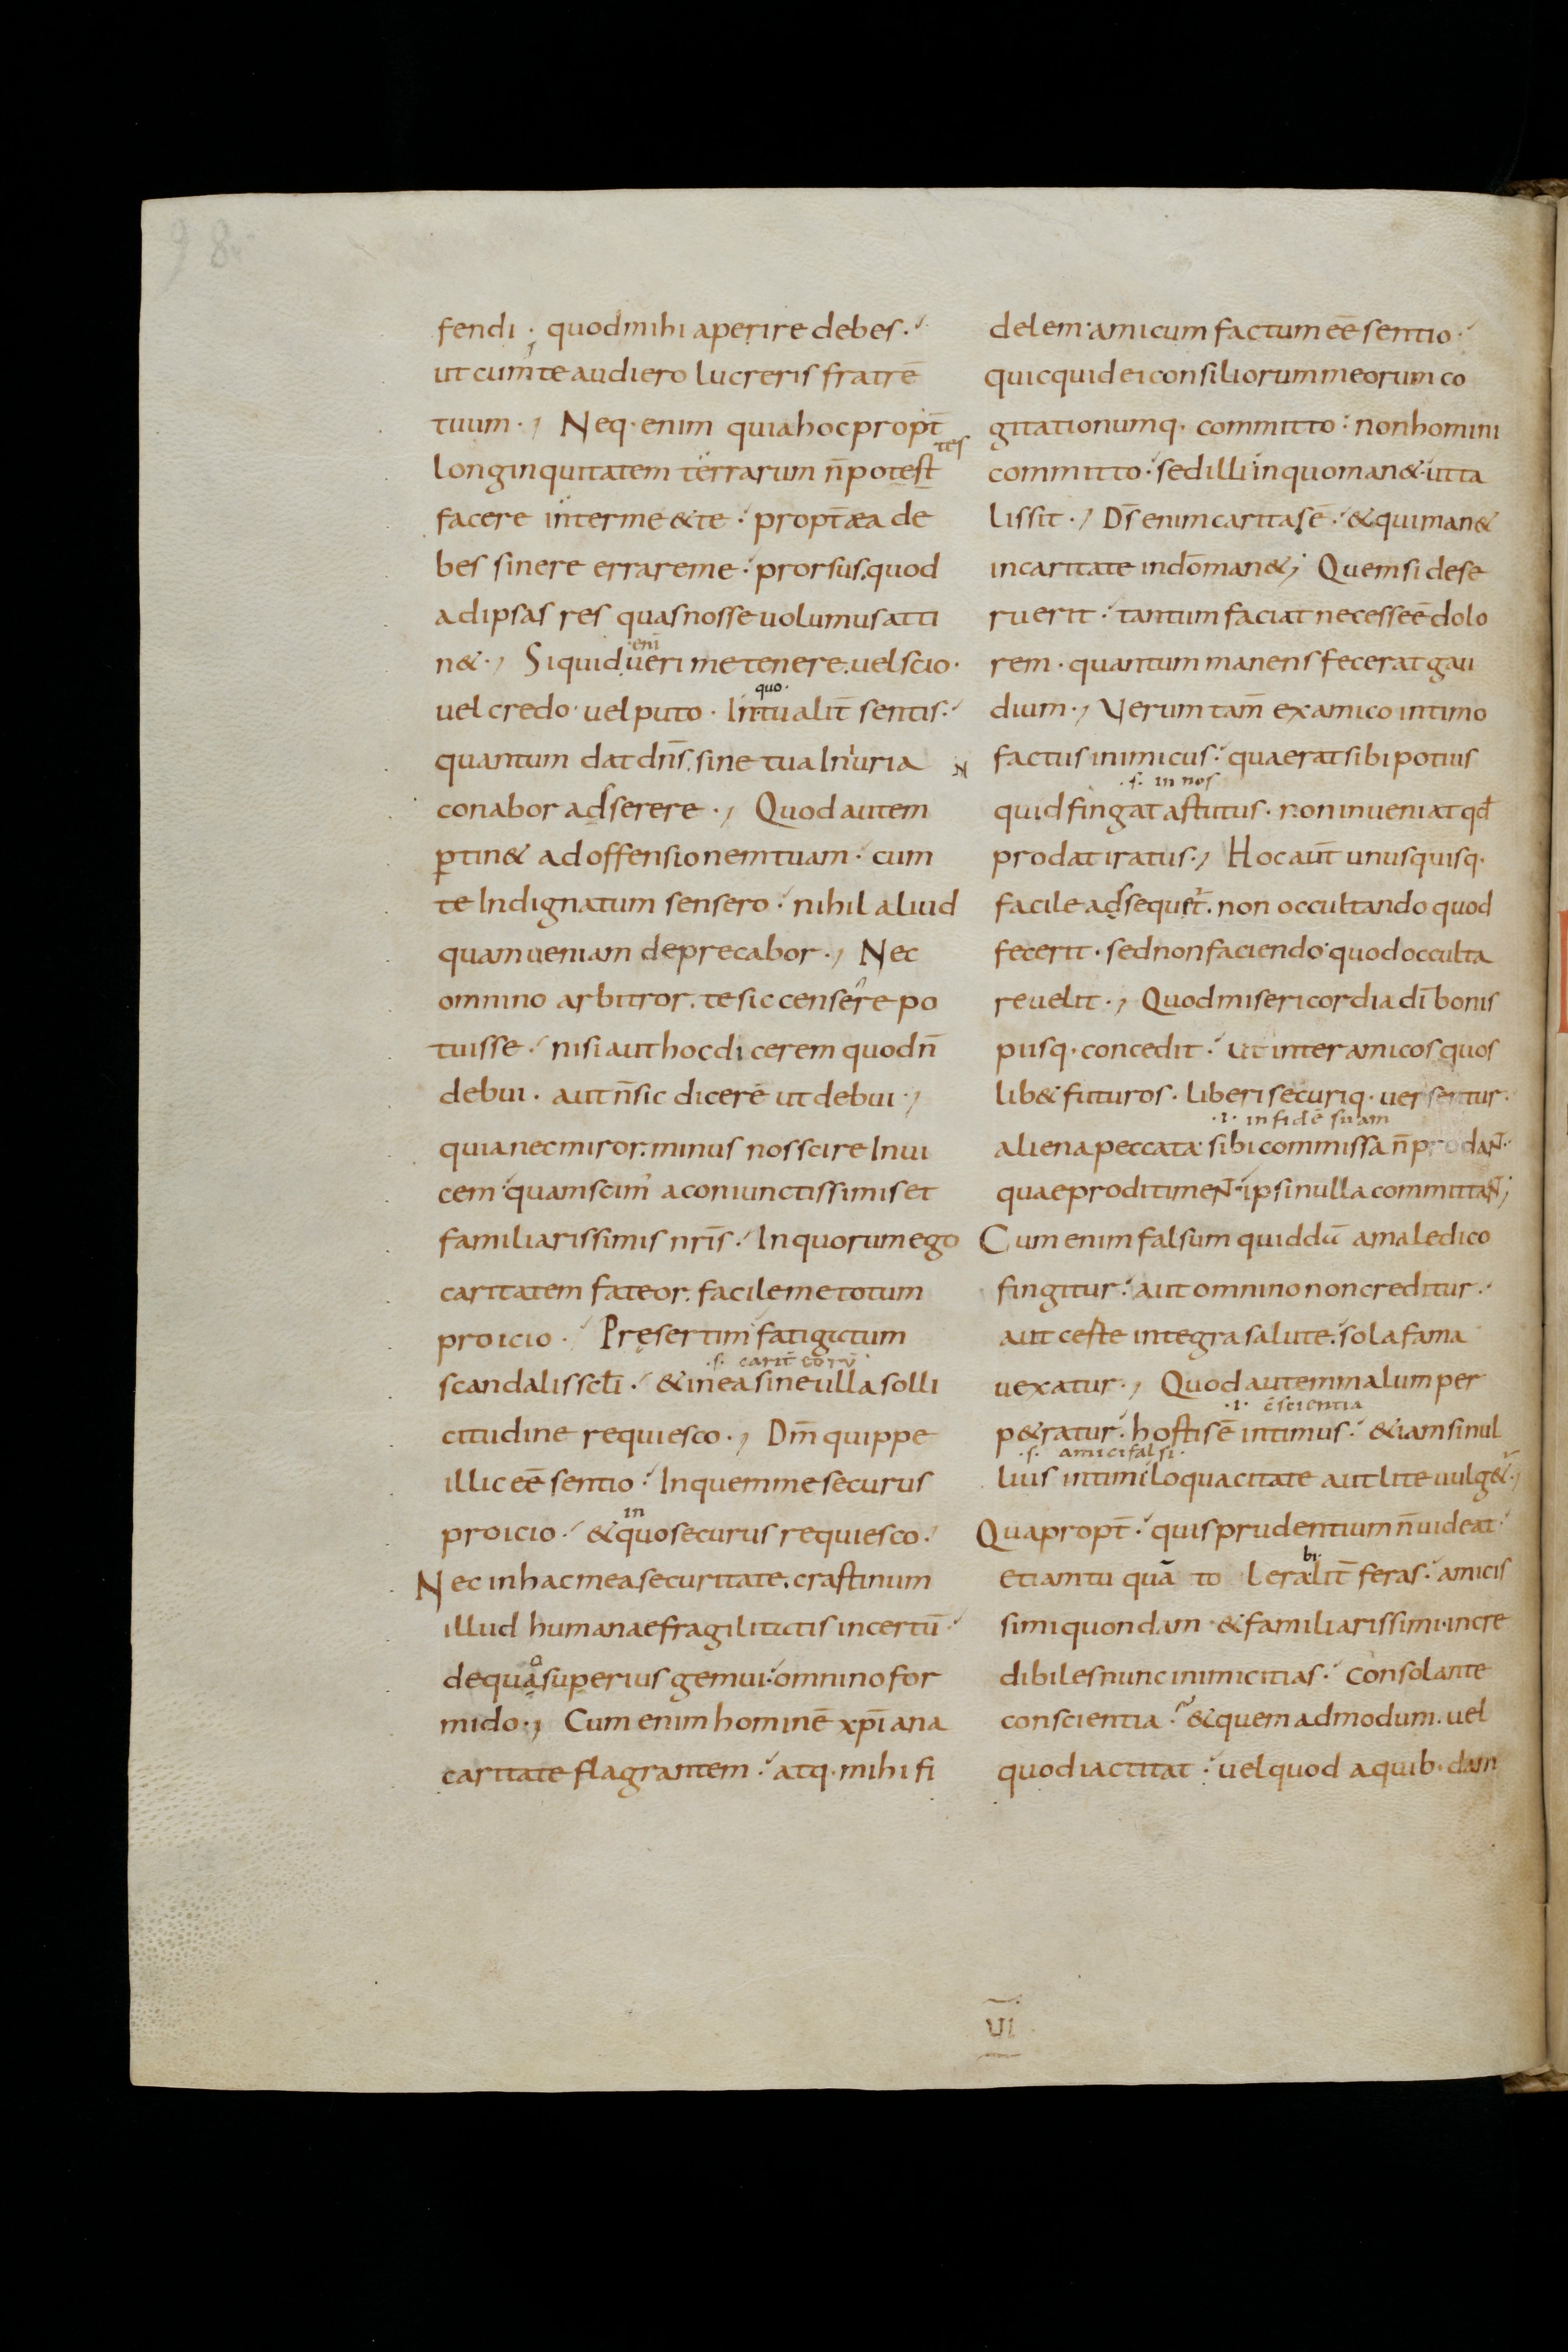 98
fendi; quod mihi aperire debes.
ut cum te audiero lucreris fratrē
tuum., Neq· enim quia hoc propt̄
longinquitatem terrarum n̄ potest
tes
facere inter me &te· propt̄ æa de
bes sinere errare me· prorsus, quod
ad ipsas res quas nosse uolumus atti
n&·, Si quid ueri me tenere. uel scio·
enī
uel credo· uel puto· In tu alit̄ sentis·
quo·
quantum dat dn̄s. sine tua Iniuria
conabor adserere·, Quod autem
ꝑtin& ad offensionem tuam· cum
te Indignatum sensero· nihil aliud
quam ueniam deprecabor·, Nec
omnino arbitror. te sic censere po
tuisse· nisi aut hoc dicerem quod n̄
debui· aut n̄ sic dicerē ut debui·,
quia nec miror. minus nos scire Inui
cem· quam scim̄ a coniunctissimis et
familiarissimis nr̄is· In quorum ego
caritatem fateor. facile me totum
proicio· Presertim fatigatum
·s· carit̄ eorū
scandalis scl̄i· &in ea sine ulla solli
citudine requiesco·, Dm̄ quippe
illic eē sentio· In quem me securus
in
proicio· &quo securus requiesco·
Nec in hac mea securitate. crastinum
illud humanae fragilitatis incertū·
o
de qua superius gemui· omnino for
mido·, Cum enim hominē xp̄iana
caritate flagrantem· atq· mihi fi
delem· amicum factum eē sentio·
quicquid ei consiliorum meorum co
gitationumq· committo· non homini
committo· sed illi in quo man&· ut ta
lis sit·, Ds̄ enim caritas ē· &qui man&
in caritate in dō man&; Quem si dese
ruerit· tantum faciat necesse ē dolo
rem· quantum manens fecerat gau
dium·, Verum tam̄ ex amico intimo
N
factus inimicus· quaerat sibi potius
·s· in nos
quid fingat astutus· non inueniat qd̄
prodat iratus·, Hoc aut̄ unusquisq·
facile adsequet̄. non occultando quod
fecerit· sed non faciendo· quod occulta
re uelit·, Quod misericordia dī bonis
piisq· concedit· ut inter amicos quos
lib& futuros· liberi securiq· uersentur·
·i· in fidē suam
aliena peccata· sibi commissa n̄ prodaN̄·
quae prodi timeN̄· ipsi nulla committaN̄;
Cum enim falsum quiddū a maledico
fingitur· aut omnino non creditur·
aut ceste integra salute. sola fama
uexatur·, Quod autem malum per
·i· c̄scientia
p&ratur· hostis ē intimus· &iam si nul
·s· amici falsi·
lius intimi loquacitate aut lite uulg&·,
Quapropt̄· quis prudentium n̄ uideat·
bi·
etiam tu quā to leralit̄ feras· amicis
simi quondam &familiarissimi· incre
dibiles nunc inimicitias· consolante
conscientia· &quem admodum. uel
quod iactitat· uel quod a quib·dam
VI